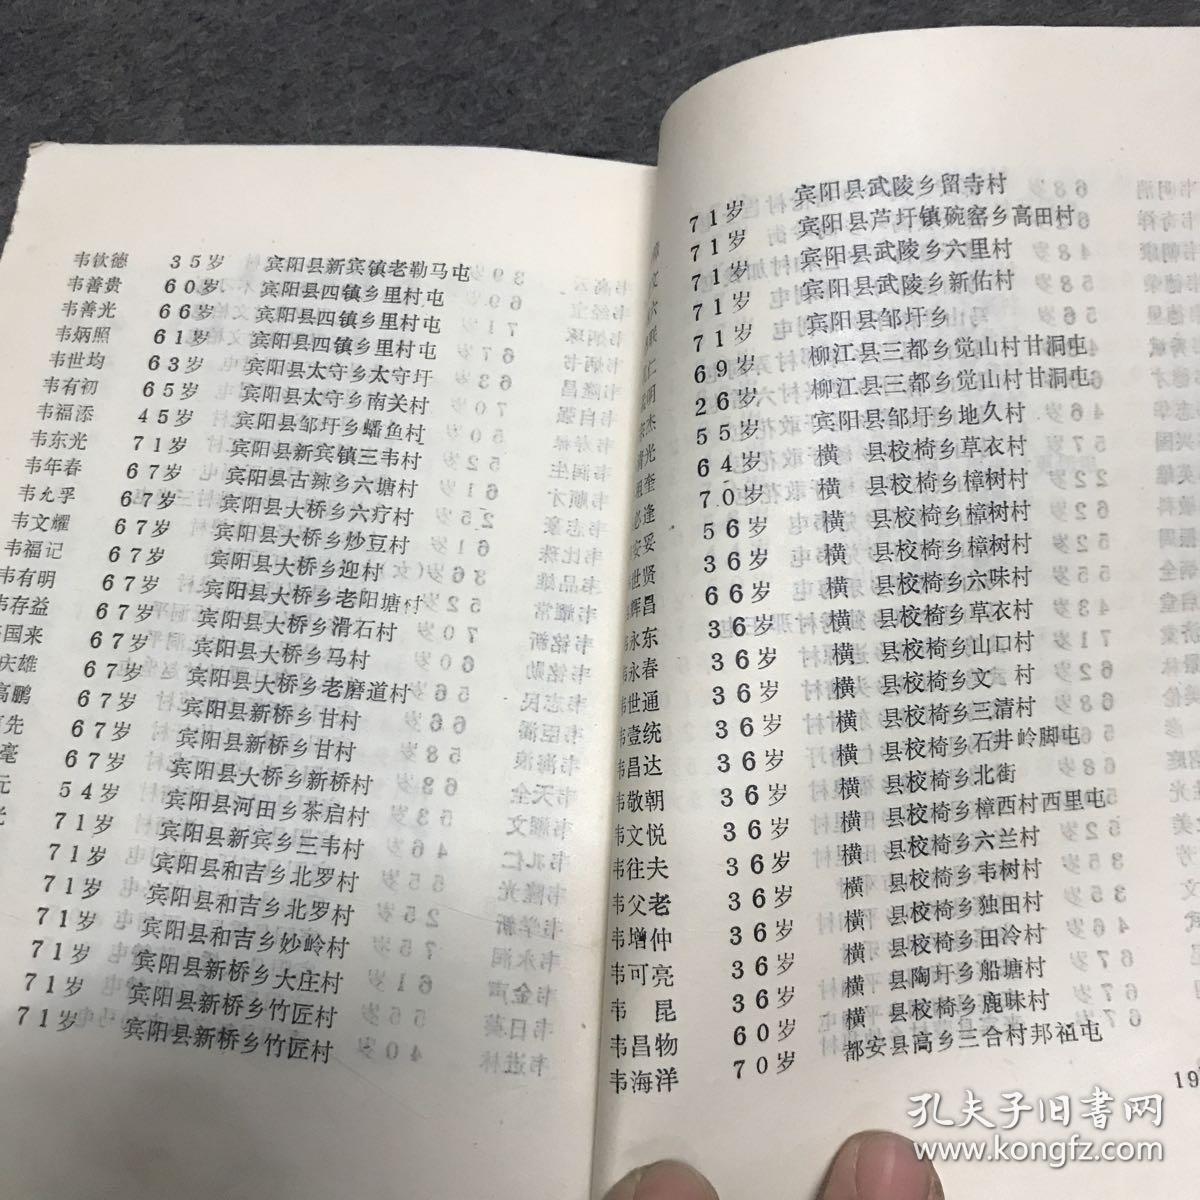 韦钦德 35岁 宾阳县新宾镇老勒马屯
韦善贵 60岁 宾阳县四镇乡里村屯
韦善光 66岁 宾阳县四镇乡里村屯
韦炳照 61岁 宾阳县四镇乡里村屯
韦世均 63岁 宾阳县太守乡太守圩
韦有初 65岁 宾阳县太守乡南关村
韦福添 45岁 宾阳县邹圩乡蟠鱼村
韦东光 71岁 宾阳县新宾镇三韦村
韦年春 67岁 宾阳县古辣乡六塘村
韦允孚 67岁 宾阳县大桥乡六疗村
韦文耀 67岁 宾阳县大桥乡炒豆村
韦福记 67岁 宾阳县大桥乡迎村
韦有明 67岁 宾阳县大桥乡老阳塘村
韦存益 67岁 宾阳县大桥乡滑石村
国来 67岁 宾阳县大桥乡马村
庆雄 67岁 宾阳县大桥乡老磨道村
高鹏 67岁 宾阳县新桥乡甘村
先 67岁 宾阳县新桥乡甘村
毫 67岁 宾阳县大桥乡新桥村
元 54岁 宾阳县河田乡茶启村
光 71岁 宾阳县新宾乡三韦村
71岁 宾阳县和吉乡北罗村
71岁 宾阳县和吉乡北罗村
71岁 宾阳县和吉乡妙岭村
71岁 宾阳县新桥乡大庄村
71岁 宾阳县新桥乡竹匠村
71岁 宾阳县新桥乡竹匠村
71岁 宾阳县武陵乡留寺村
文 71岁 宾阳县芦圩镇碗窑乡高田村
71岁 宾阳县武陵乡六里村
71岁 宾阳县武陵乡新佑村
71岁 宾阳县邹圩乡
仁 69岁 柳江县三都乡觉山村甘洞屯
明 26岁 柳江县三都乡觉山村甘洞屯
杰 55岁 宾阳县邹圩乡地久村
光 64岁 横 县校椅乡草衣村
奎 70岁 横 县校椅乡樟树村
必逢 56岁 横 县校椅乡樟树村
安妥 36岁 横 县校椅乡樟树村
世贤 66岁 横 县校椅乡六味村
辉昌 36岁 横 县校椅乡草衣村
韦永东 36岁 横 县校椅乡山口村
韦永春 36岁 横 县校椅乡文 村
韦世通 36岁 横 县校椅乡三清村
韦壹统 36岁 横 县校椅乡石井岭脚屯
韦昌达 36岁 横 县校椅乡北街
韦敬朝 36岁 横 县校椅乡樟西村西里屯
韦文悦 36岁 横 县校椅乡六兰村
韦往夫 36岁 横 县校椅乡韦树村
韦父老 36岁 横 县校椅乡独田村
韦增仲 36岁 横 县校椅乡田冷村
韦可亮 36岁 横 县陶圩乡船塘村
韦 昆 60岁 横 县校椅乡鹿味村
韦昌物 70岁 都安县高乡三合村邦祖屯
韦海洋
19
孔夫子旧书网
www.kongfz.com